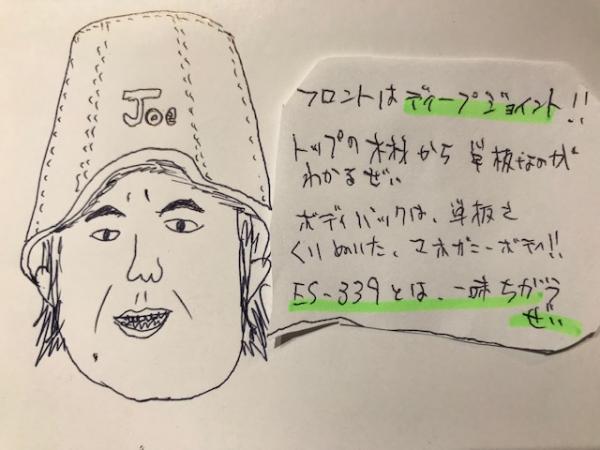 Joe
フロントは ディープジョイント!!
トップの木材から 単板なのが
わかるぜい
ボディバックは、単板を
くりぬいた、マホガニーボディ!!
ES-339とは、一味ちがう
ぜい